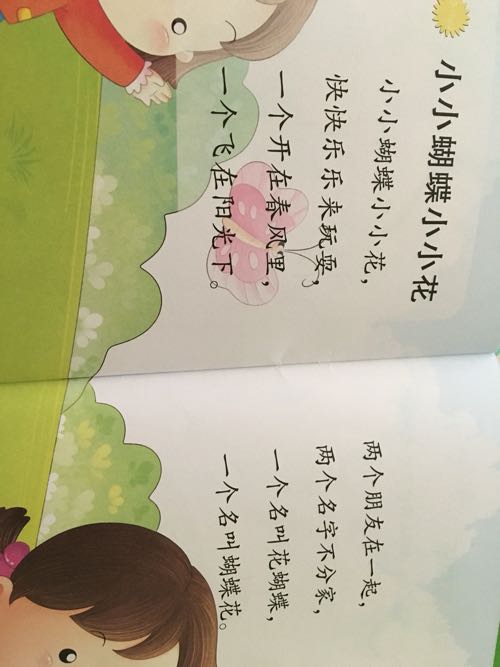 小小蝴蝶小小花
小小蝴蝶小小花，
快快乐乐来玩耍，
一个开在春风里，
一个飞在阳光下。
两个朋友在一起，
两个名字不分家，
一个名叫花蝴蝶，
一个名叫蝴蝶花。